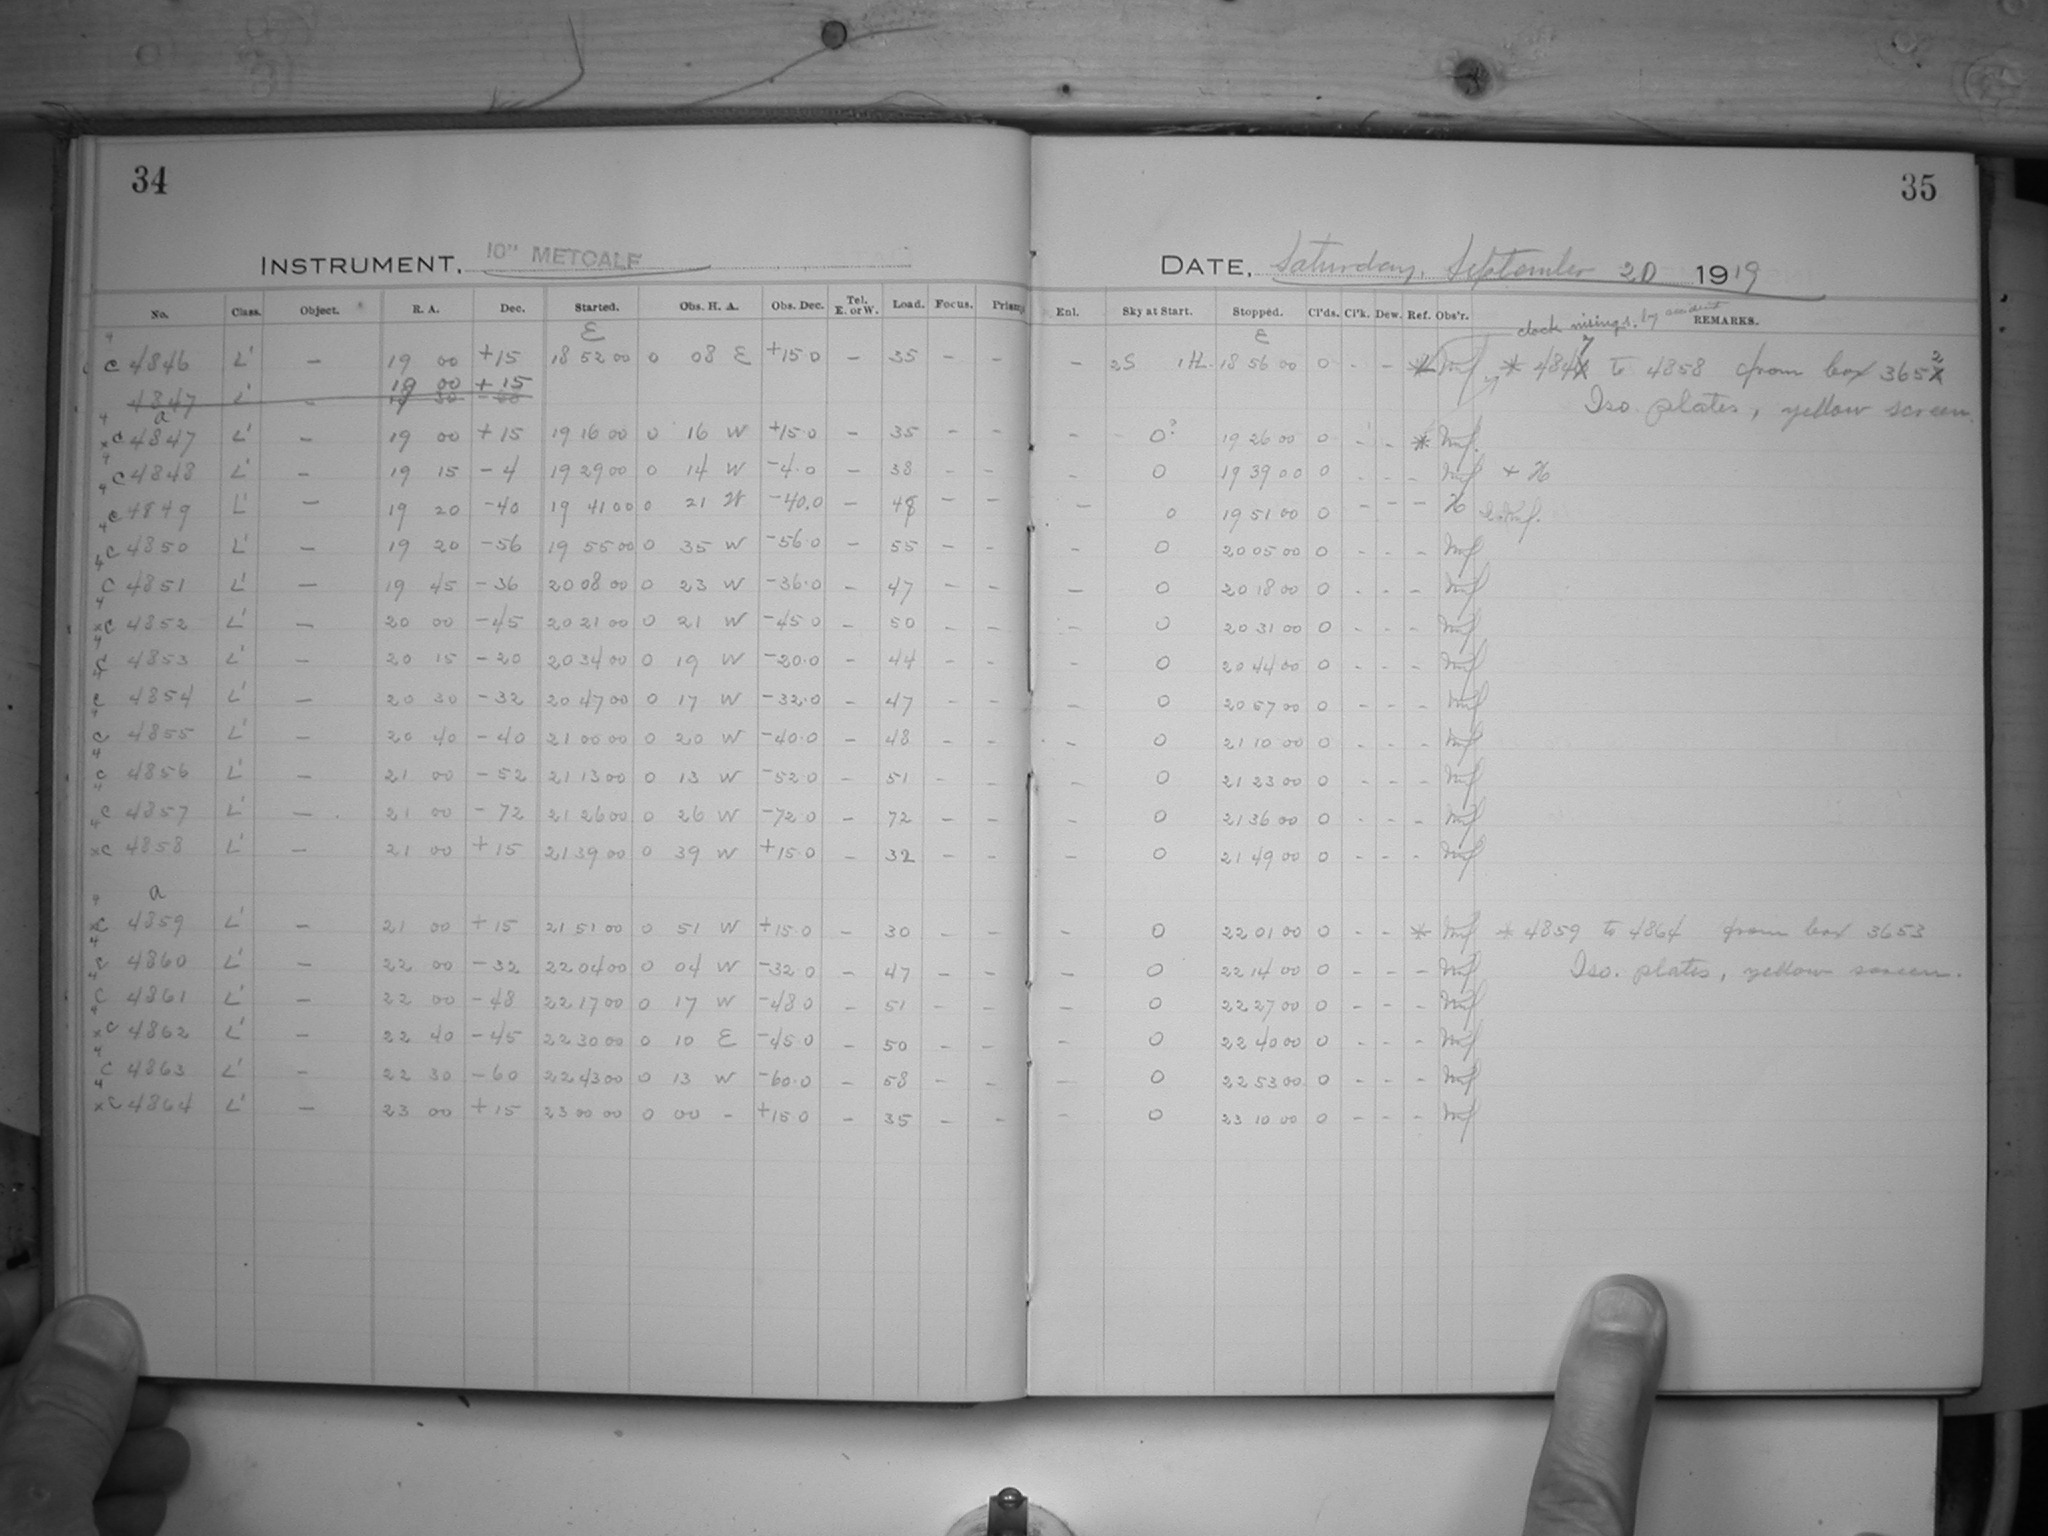 34
INSTRUMENT, 10" METCALF
No. Class. Object. R. A. Dec. Started. Obs. H. A. Obs. Dec. Tel. E. or W. Load. Focus. Prism
E
C 4846 L' – 19 00 +15 18 52 00 0 08 E +15.0 – 35 – –
19 00 +15
4847 L' –
a
C 4847 L' – 19 00 +15 19 16 00 0 16 W +15.0 – 35 – –
C 4848 L' – 19 15 -4 19 29 00 0 14 W -4.0 – 38 – –
C 4849 L' – 19 20 -40 19 41 00 0 21 W -40.0 – 48 – –
C 4850 L' – 19 20 -56 19 55 00 0 35 W -56.0 – 55 – –
C 4851 L' – 19 45 -36 20 08 00 0 23 W -36.0 – 47 – –
xC 4852 L' – 20 00 -45 20 21 00 0 21 W -45 0 – 50 – –
C 4853 L' – 20 15 -20 20 34 00 0 19 W -20.0 – 44 – –
C 4854 L' – 20 30 -32 20 47 00 0 17 W -32.0 – 47 – –
C 4855 L' – 20 40 -40 21 00 00 0 20 W -40.0 – 48 – –
C 4856 L' – 21 00 -52 21 13 00 0 13 W -52 0 – 51 – –
C 4857 L' – 21 00 -72 21 26 00 0 26 W -72 0 – 72 – –
xC 4858 L' – 21 00 +15 21 39 00 0 39 W +15.0 – 32 – –
a
xC 4859 L' – 21 00 +15 21 51 00 0 51 W +15.0 – 30 – –
C 4860 L' – 22 00 -32 22 04 00 0 04 W -32 0 – 47 – –
C 4861 L' – 22 00 -48 22 17 00 0 17 W -48 0 – 51 – –
xC 4862 L' – 22 40 -45 22 30 00 0 10 E -45 0 – 50 – –
C 4863 L' – 22 30 -60 22 43 00 0 13 W -60.0 – 58 – –
xC 4864 L' – 23 00 +15 23 00 00 0 00 – +15 0 – 35 – –
35
DATE, Saturday, September 20 1919
Enl. Sky at Start. Stopped. Cl'ds. Cl'k. Dew. Ref. Obs'r. REMARKS.
E clock risings. by accident
– 2S 1H. 18 56 00 0 – – * * 4847 to 4858 from box 3652
Iso. plates, yellow screen.
– 0? 19 26 00 0 – – *
0 19 39 00 0 – – – + H
– 0 19 51 00 0 – – – H
– 0 20 05 00 0 – – –
– 0 20 18 00 0 – – –
– 0 20 31 00 0 – – –
– 0 20 44 00 0 – – –
– 0 20 57 00 0 – – –
– 0 21 10 00 0 – – –
– 0 21 23 00 0 – – –
– 0 21 36 00 0 – – –
– 0 21 49 00 0 – – –
– 0 22 01 00 0 – – * * 4859 to 4864 from box 3653
– 0 22 14 00 0 – – – Iso. plates, yellow screen.
– 0 22 27 00 0 – – –
– 0 22 40 00 0 – – –
– 0 22 53 00 0 – – –
– 0 23 10 00 0 – – –